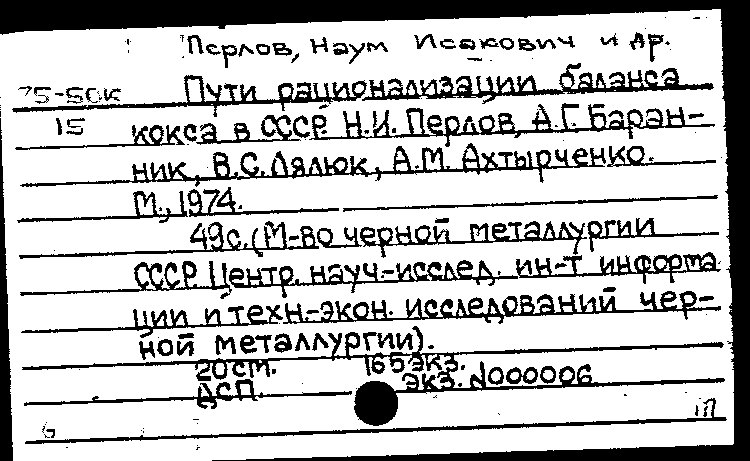 Перлов, Наум Исакович и др.
75-50к Пути рационализации баланса
15 кокса в СССР. Н.И. Перлов, А.Г. Баран-
ник, В.С. Лялюк, А.М. Ахтырченко.
М., 1974.
49с. (М-во черной металлургии
СССР. Центр. науч.-исслед. ин-т информа
ции и техн.-экон. исследований чер-
ной металлургии).
20см. 165экз.
ДСП. экз. №000006
6 1П